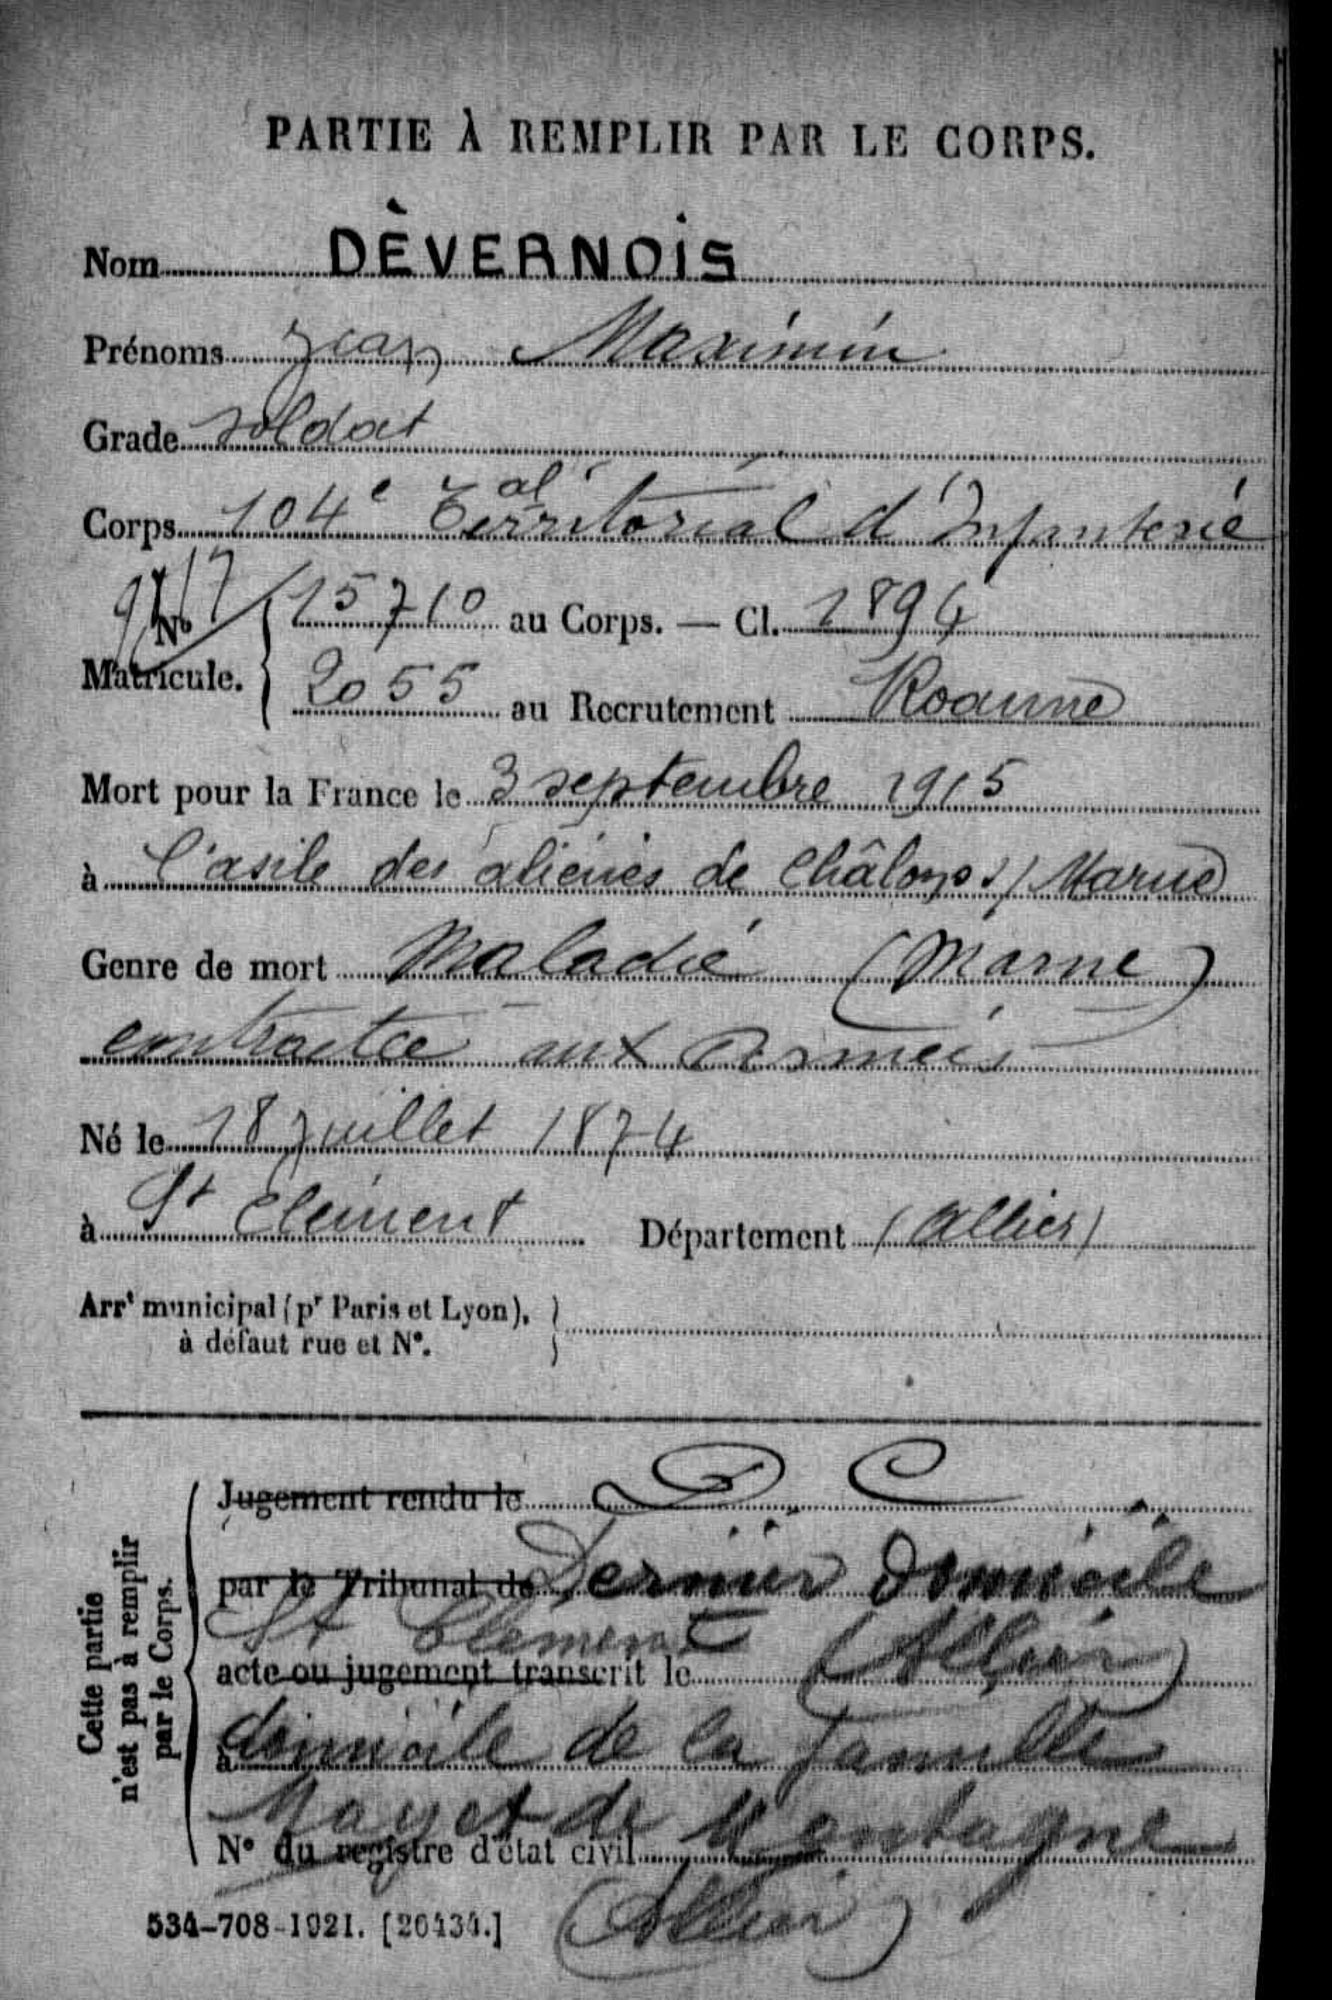 PARTIE À REMPLIR PAR LE CORPS.
Nom DÈVERNOIS
Prénoms Jean Maximin
Grade soldat
Corps 104e Territorial al d'Infanterie
N° 15710 au Corps. — Cl. 1894
Matricule. 2055 au Recrutement Roanne
Mort pour la France le 3 septembre 1915
à l'asile des aliénés de Châlons s/ Marne
Genre de mort Maladie (Marne)
contractée aux Armées
Né le 18 juillet 1874
à St Clément Département (Allier)
Arrt municipal (pr Paris et Lyon),
à défaut rue et N°.
Jugement rendu le D C
par le Tribunal de Dernier domicile
St Clement (Allier)
acte ou jugement transcrit le
à domicile de la famille
Mayet de Montagne
N° du registre d'état civil
(Allier)
534-708-1921. [26434.]
Cette partie
n'est pas à remplir
par le Corps.